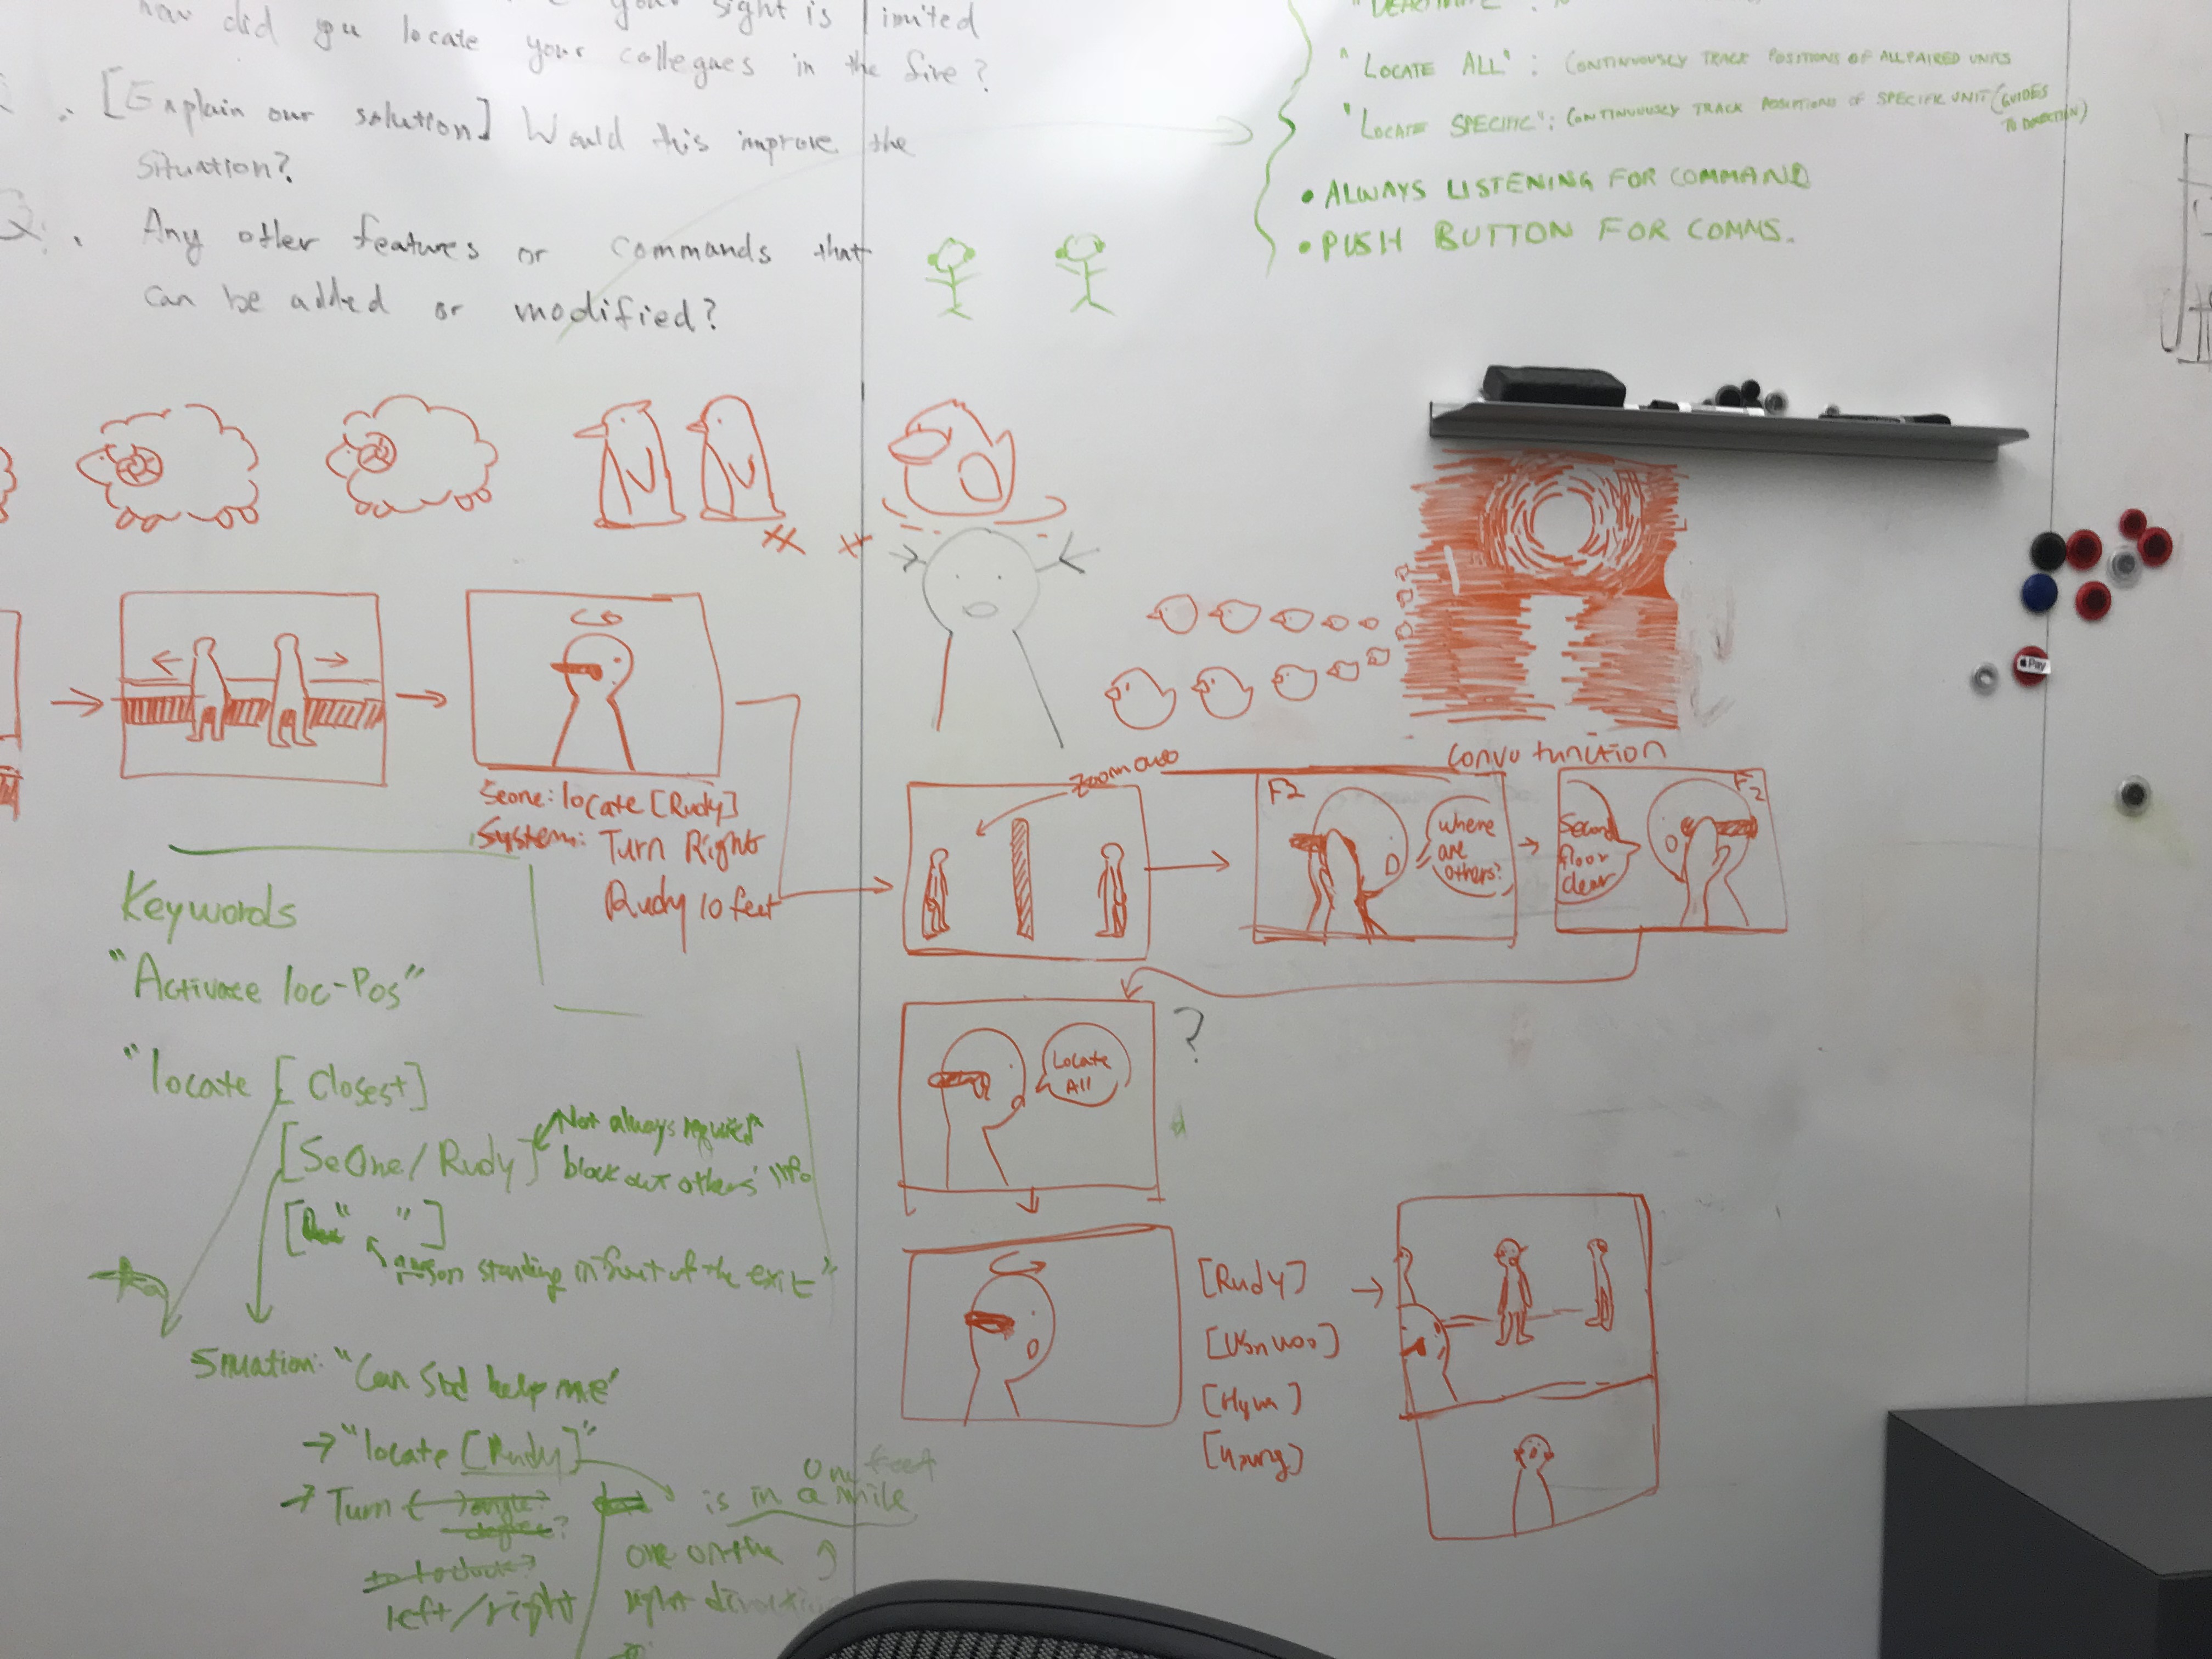 your sight is limited
how did you locate your collegues in the fire?
[Explain our solution] Would this improve the
situation?
Q. Any other features or commands that
can be added or modified?
"LOCATE ALL": CONTINUOUSLY TRACK POSITIONS OF ALL PAIRED UNITS
"LOCATE SPECIFIC": CONTINUOUSLY TRACK POSITIONS OF SPECIFIC UNIT (GUIDES
TO DIRECTION)
• ALWAYS LISTENING FOR COMMAND
• PUSH BUTTON FOR COMMS.
Pay
Seone: locate [Rudy]
System: Turn Right
Rudy 10 feet
Zoom out
Convo function
F2
Where
are
others?
F2
Second
floor
clear
Locate
All
?
[Rudy]
[Hyun]
Keywords
"Activate loc-Pos"
"locate [Closest]
[SeOne/Rudy]
Not always required
block out others' info
[" "]
person standing in front of the exit"
Situation: "Can help me"
→ "locate [Rudy]"
→ Turn
left/right
One feet
is in a mile
one on the
right direction